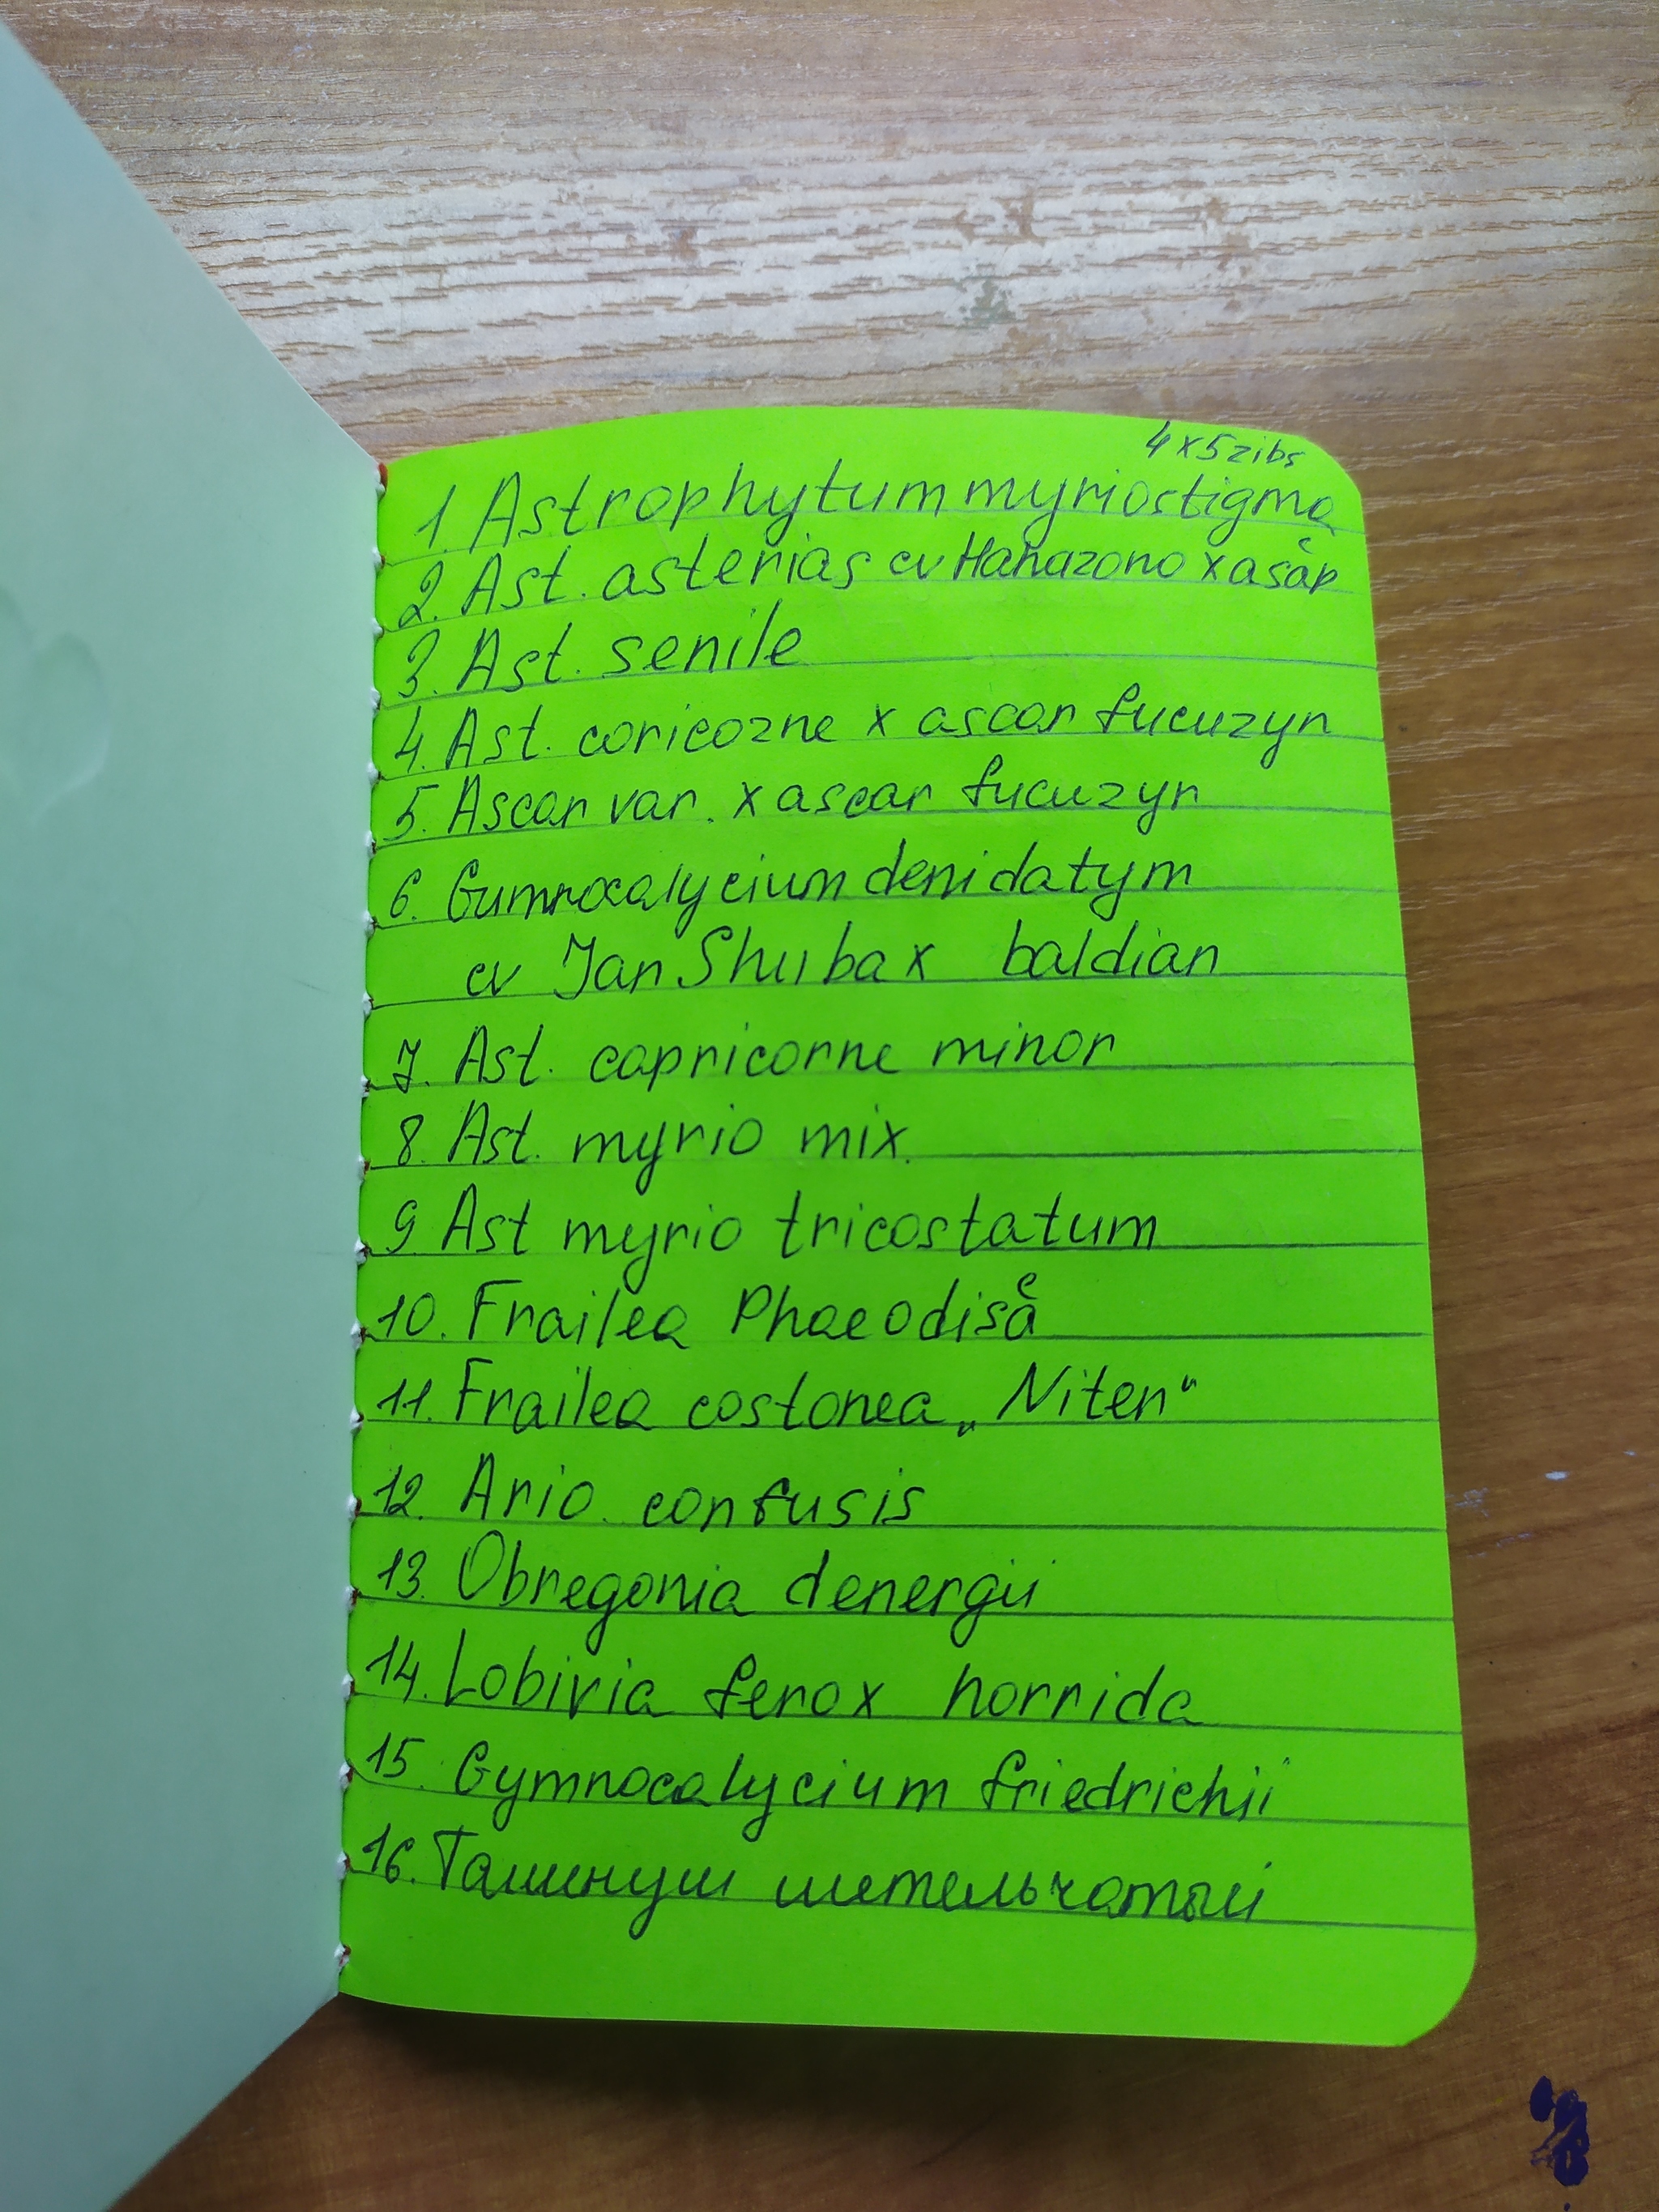 4x5 zibs
1. Astrophytum myriostigma
2. Ast. asterias cv Hanazono x ascar
3. Ast. senile
4. Ast. coricozne x ascar fucuzyn
5. Ascar var. x ascar fucuzyn
6. Gumnocalycium denidatym
cv Jan Shuba x baldian
7. Ast. capricorne minor
8. Ast. myrio mix.
9. Ast myrio tricostatum
10. Frailea Phaeodisca
11. Frailea costonea „Niten“
12. Ario. confusis
13. Obregonia denergii
14. Lobivia ferox horrida
15. Gymnocalycium friedrichii
16. Ташинуш шетельчатый